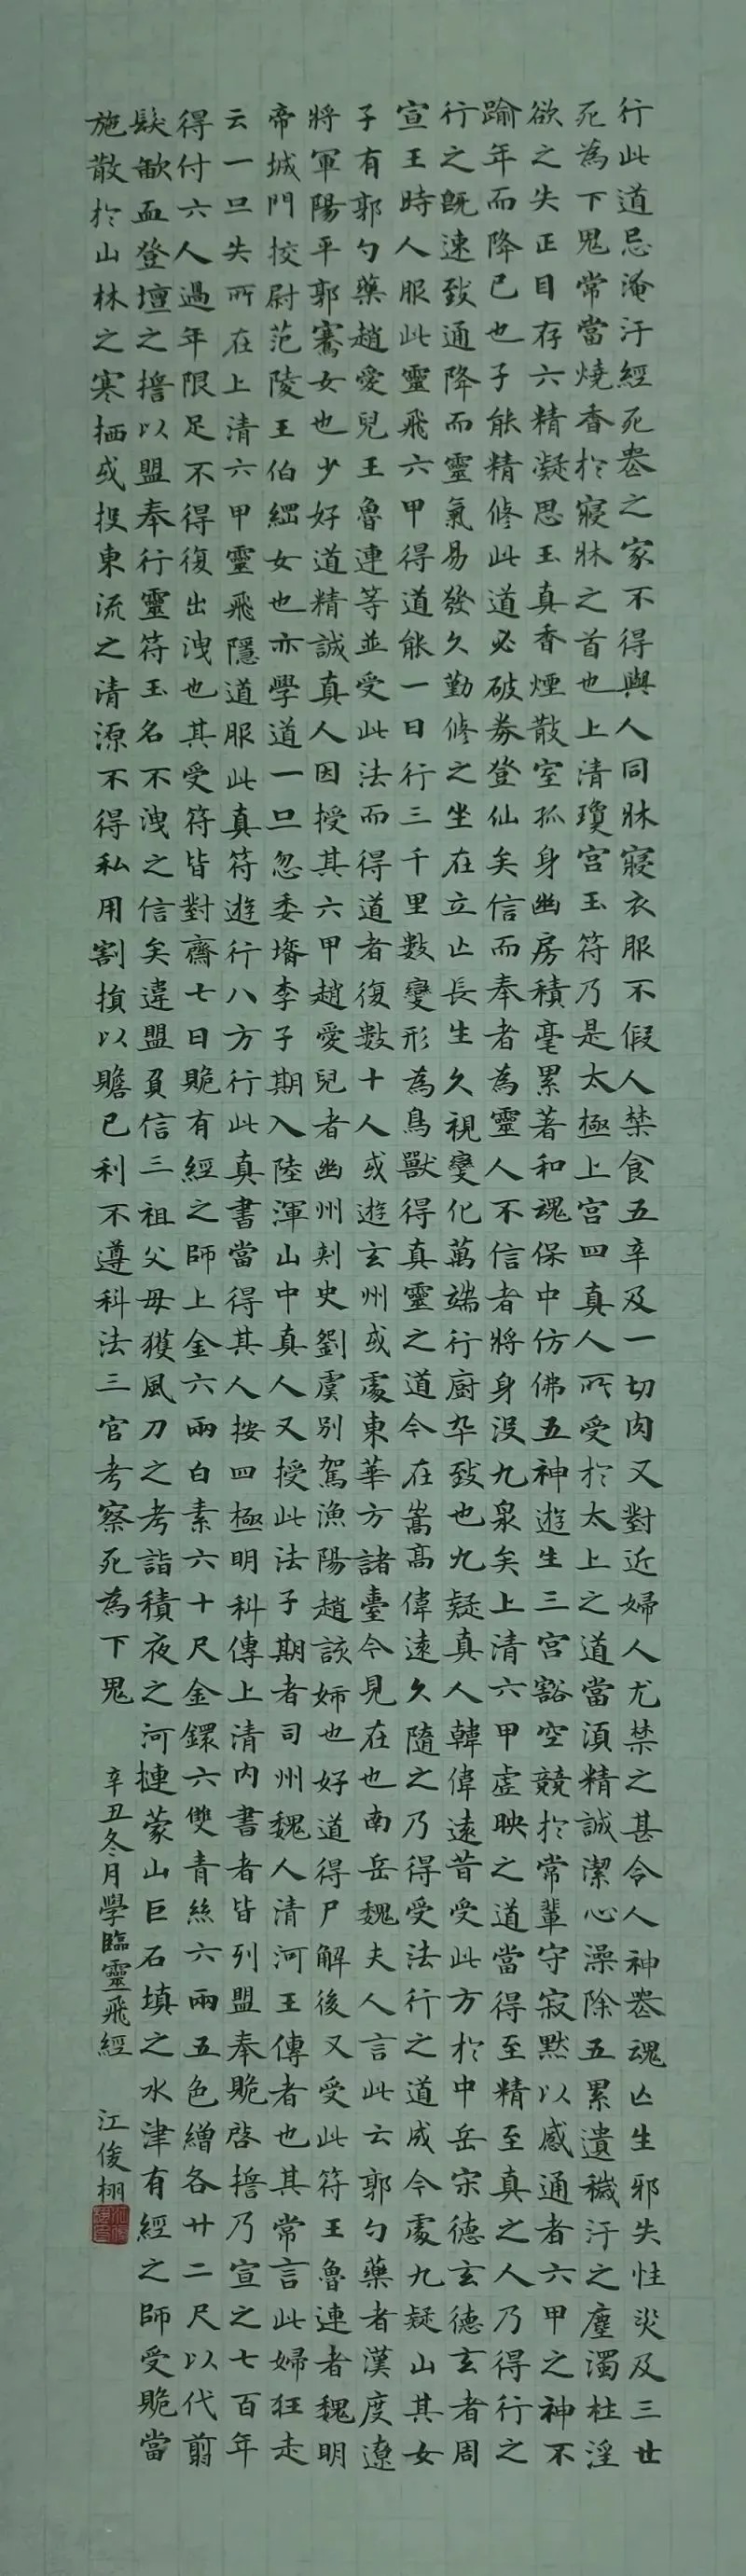 行此道忌淹汙經死喪之家不得與人同牀寢衣服不假人禁食五辛及一切肉又對近婦人尤禁之甚令人神喪魂亡生邪失性災及三世
死為下鬼常當燒香於寢牀之首也上清瓊宮玉符乃是太極上宮四真人所受於太上之道當須精誠潔心澡除五累遺穢汙之塵濁杜淫
欲之失正目存六精凝思玉真香煙散室孤身幽房積毫累著和魂保中仿佛五神遊生三宮豁空競於常輩守寂默以感通者六甲之神不
踰年而降已也子能精修此道必破券登仙矣信而奉者為靈人不信者將身没九泉矣上清六甲虛映之道當得至精至真之人乃得行之
行之既速致通降而靈氣易發久勤修之坐在立亡長生久視變化萬端行廚卒致也九疑真人韓偉遠昔受此方於中岳宋德玄德玄者周
宣王時人服此靈飛六甲得道能一日行三千里數變形為鳥獸得真靈之道今在嵩高偉遠久隨之乃得受法行之道成今處九疑山其女
子有郭勺藥趙愛兒王魯連等並受此法而得道者復數十人或遊玄州或處東華方諸臺今見在也南岳魏夫人言此云郭勺藥者漢度遼
將軍陽平郭騫女也少好道精誠真人因授其六甲趙愛兒者幽州刾史劉虞別駕漁陽趙該姊也好道得尸解後又受此符王魯連者魏明
帝城門挍尉范陵王伯綱女也亦學道一旦忽委壻李子期入陸渾山中真人又授此法子期者司州魏人清河王傳者也其常言此婦狂走
云一旦失所在上清六甲靈飛隱道服此真符遊行八方行此真書當得其人按四極明科傳上清內書者皆列盟奉贶啓擔乃宣之七百年
得付六人過年限足不得復出洩也其受符皆對齋七日贶有經之師上金六兩白素六十尺金鐶六雙青絲六兩五色繒各廿二尺以代翦
髮歃血登壇之擔以盟奉行靈符玉名不洩之信矣違盟負信三祖父母獲風刀之考詣積夜之河摙蒙山巨石填之水津有經之師受贶當
施散於山林之寒栖或投東流之清源不得私用割損以贍已利不遵科法三官考察死為下鬼
辛丑冬月學臨靈飛經 江俊栩